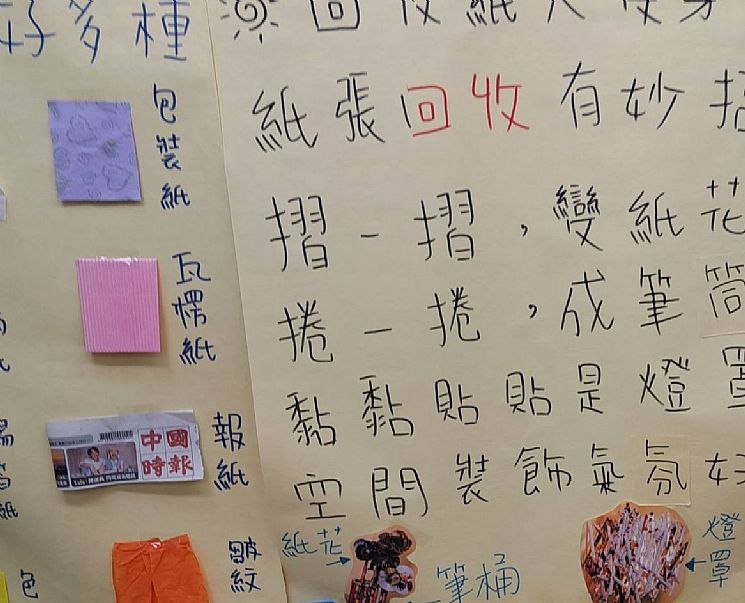 好多種
包裝紙
瓦楞紙
報紙
中國時報
皺紋
色
☼回收紙
紙張回收有妙招
摺一摺，變紙花
捲一捲，成筆筒
黏黏貼貼是燈罩
空間裝飾氣氛好
紙花
筆桶
燈罩